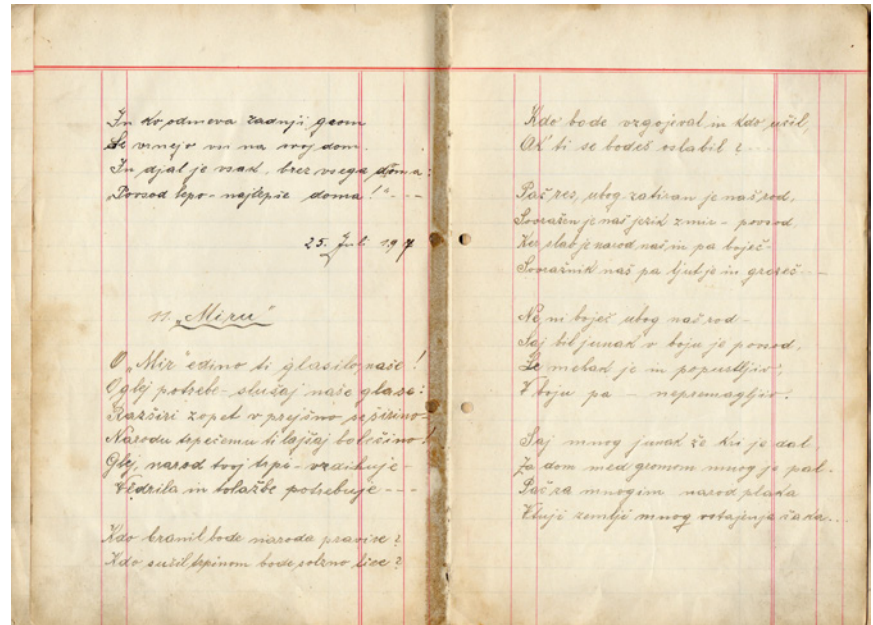 In ko odmeva zadnji grom
Se vrnejo vsi na svoj dom.
In djal je vsak, brez vsega doma:
„Povsod lepo - najlepše doma!" - - -
25. Juli 1917
11. „Miru"
O „Mir" edino ti glasilo naše!
Oglej potrebe - slušaj naše glase:
Razširi zopet v prejšno se širino -
Narodu trpečemu ti lajšaj bolečino!
Glej, narod tvoj trpi - vzdihuje -
Vedrila in tolažbe potrebuje - - -
Kdo branil bode naroda pravice?
Kdo sušil trpinom bode solzno lice?
Kdo bode vzgojeval in kdo učil,
Ak' ti se bodeš oslabil? ...
Pač res, ubog zatiran je naš rod,
Sovražen je naš jezik zmir - povsod,
Ker slab je narod naš in pa boječ -
Sovražnik naš pa ljut je in grozeč - -
Ne, ni boječ ubog naš rod -
Saj bil junak v boju je povsod,
Le mehak je in popustljiv,
V boju pa - nepremagljiv.
Saj mnog junak že kri je dal,
Za dom med gromom mnog je pal.
Pač za mnogim narod plaka
V tuji zemlji mnog vstajenja čaka...